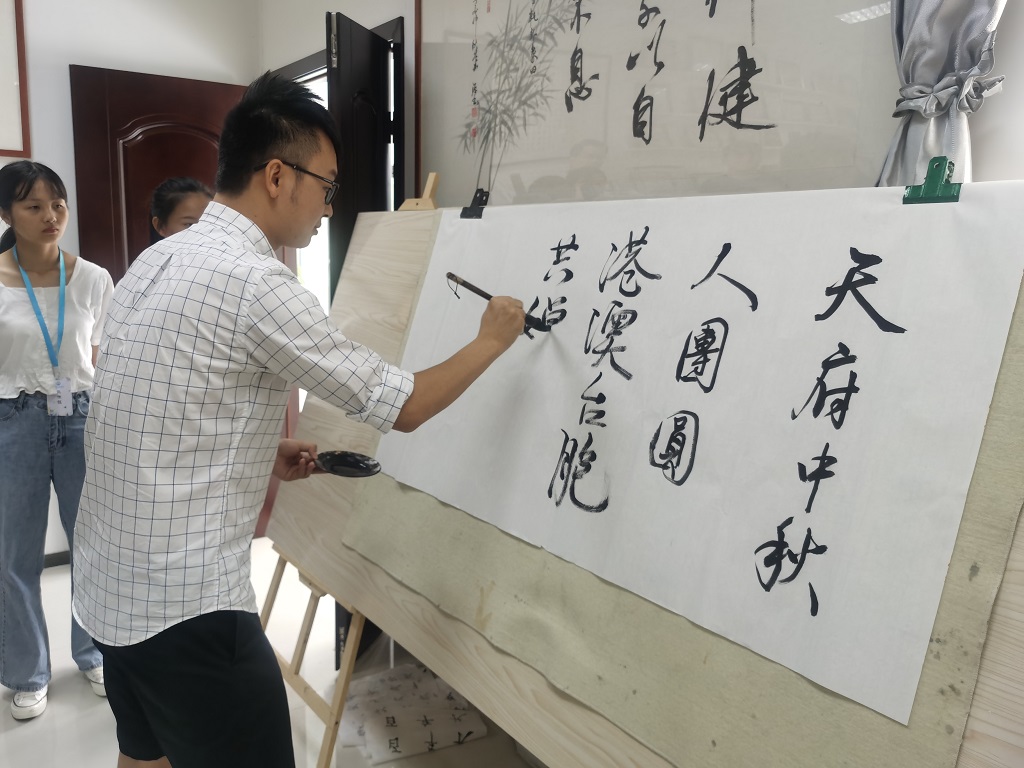 天府中秋
人團圓
港澳台胞
共
健
以自
息